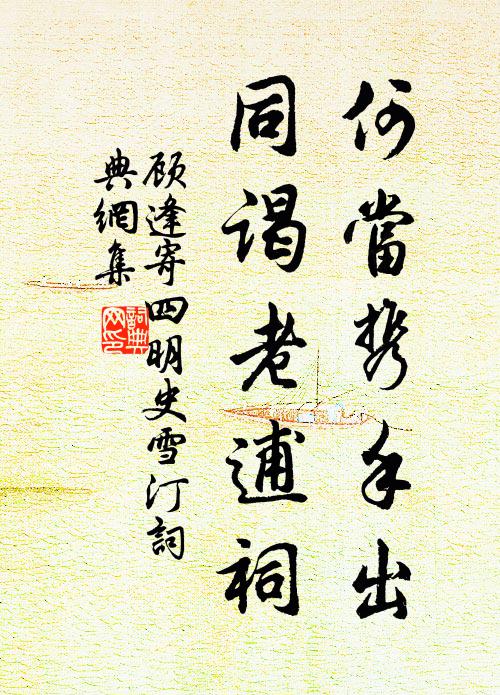 何當携手出
同謁老逋祠
顾逢寄四明史雪汀詞
典網集
詞典
网印